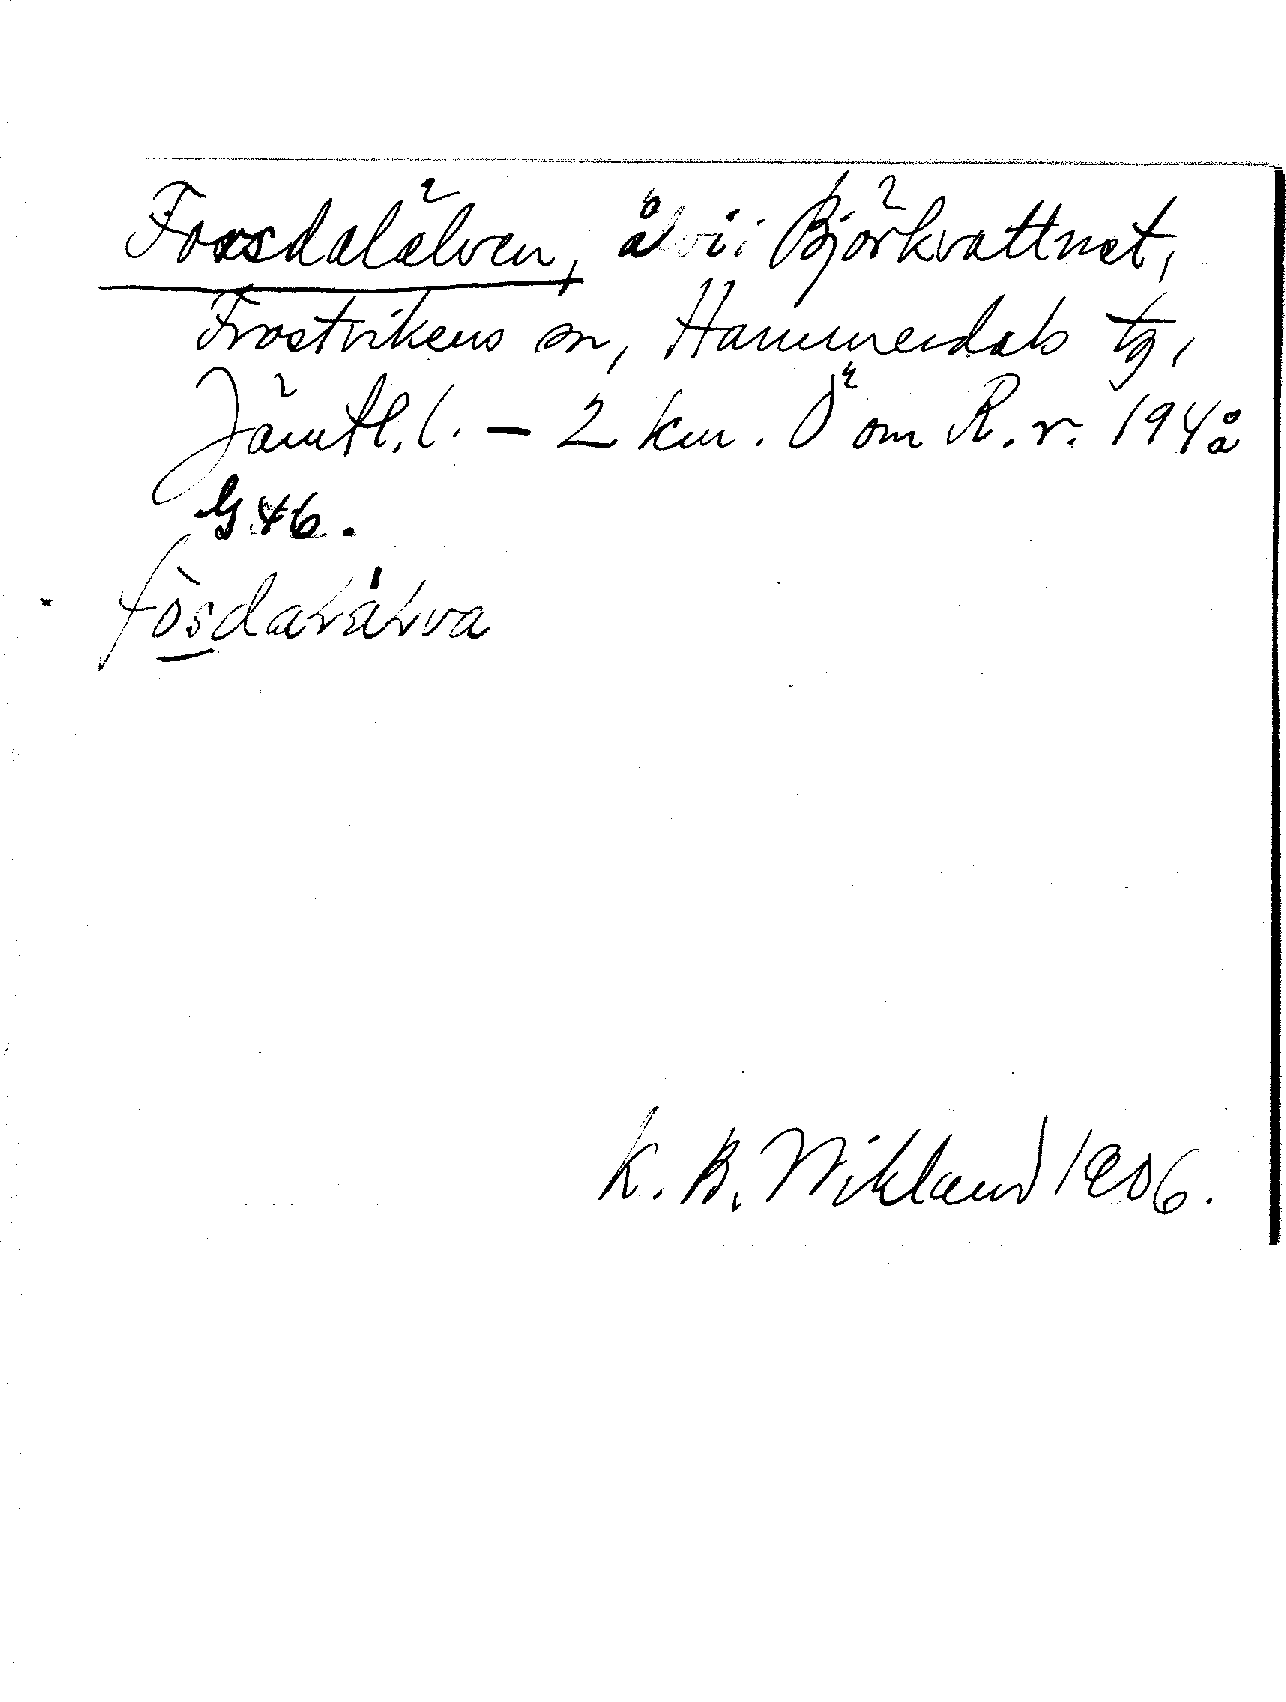 Forsdalälven, å i Björkvattnet,
Frostvikens sn, Hammerdals tg,
Jämtl. l. – 2 km. Ö om R. r. 194 å
G 46.
fòsdaLáLva
K. B. Wiklund 1906.